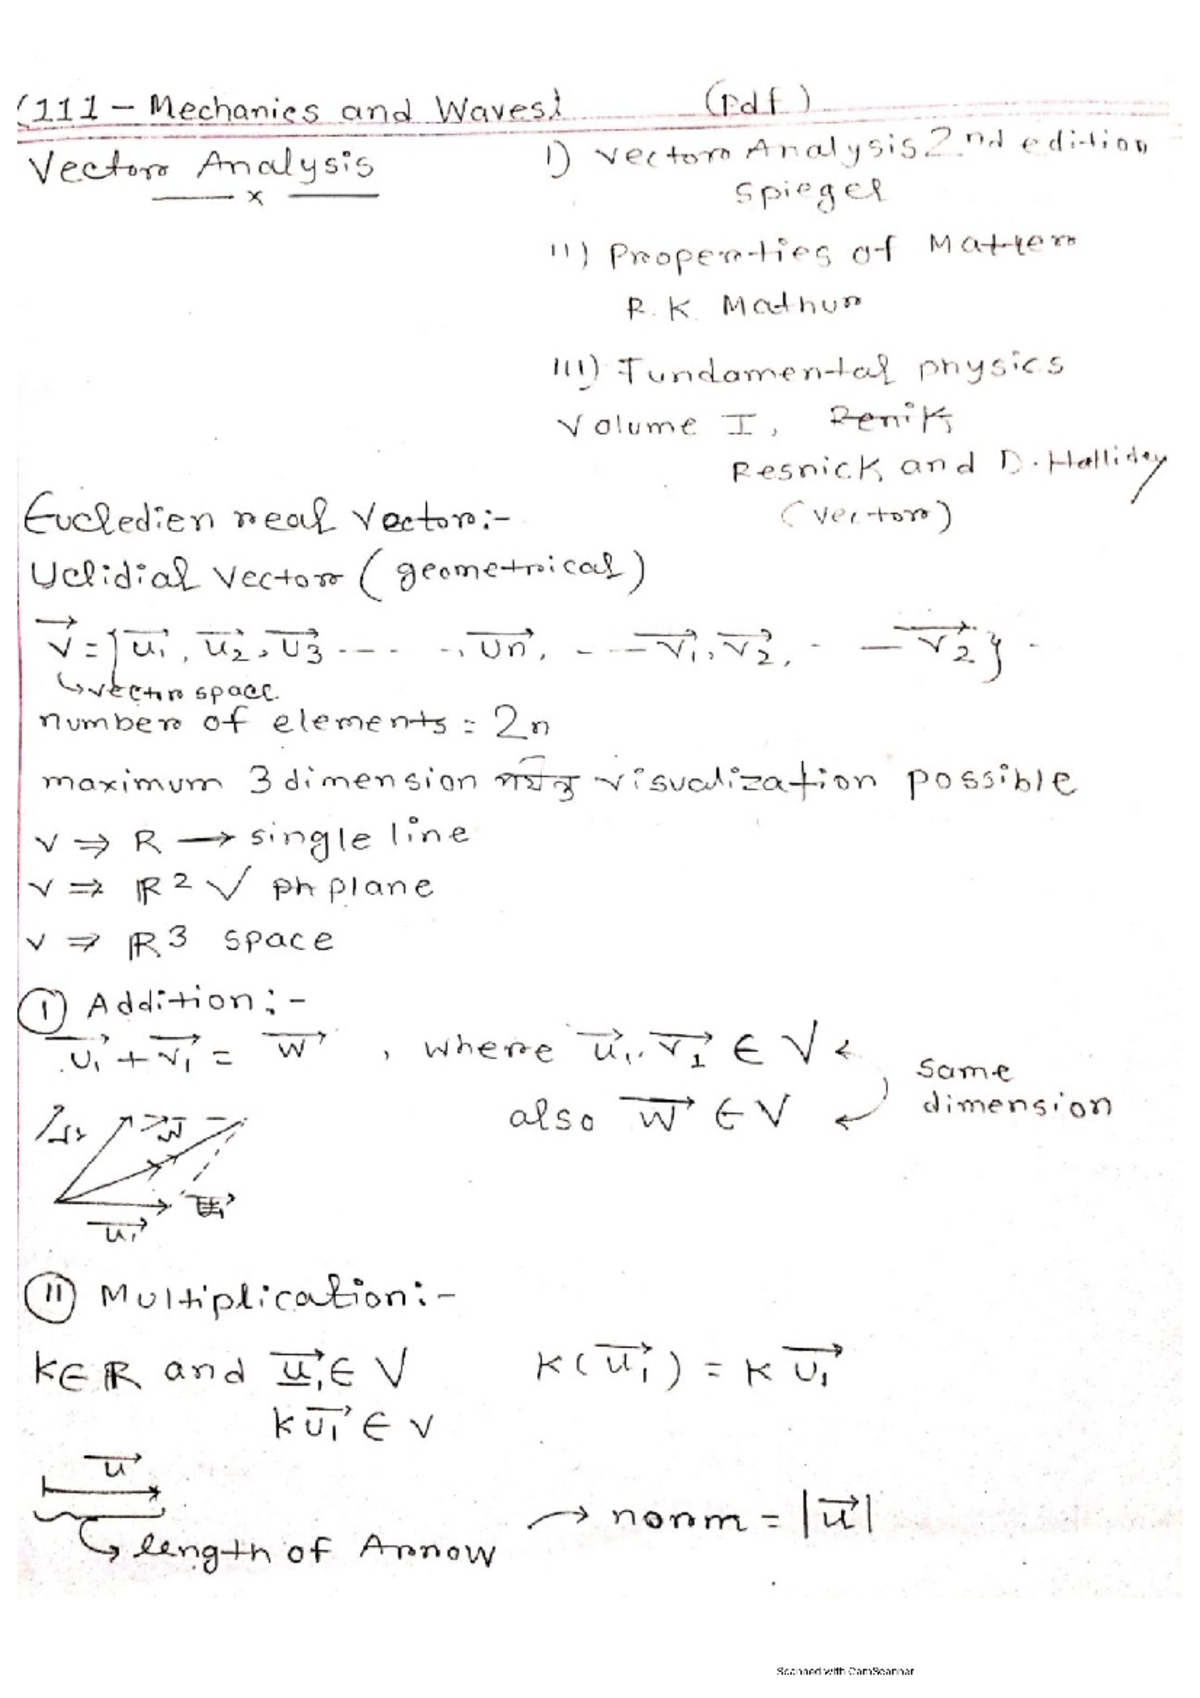 (111 - Mechanics and Waves) (Pdf)
Vector Analysis
x
I) Vector Analysis 2nd edition
Spiegel
II) Properties of Matter
R.K. Mathur
III) Fundamental physics
Volume I, Renik
Resnick and D. Halliday
(Vector)
Eucledien real Vector:-
Uclidial Vector (geometrical)
V⃗ = {u⃗₁, u⃗₂, u⃗3 ---- -, u⃗n, - - - v⃗₁, v⃗₂, - - v⃗₂} -
↳ vector space.
number of elements = 2n
maximum 3 dimension পর্যন্ত visualization possible
V ⇒ R → single line
V ⇒ ℝ² √ ph plane
V ⇒ ℝ³ space
(I) Addition:-
u⃗₁ + v⃗₁ = w⃗ , where u⃗₁, v⃗₁ ∈ V
also w⃗ ∈ V
same
dimension
w⃗
u⃗₁
(II) Multiplication:-
K ∈ ℝ and u⃗₁ ∈ V K(u⃗₁) = K u⃗₁
k u⃗₁ ∈ V
u⃗
↳ length of Arrow → norm = |u⃗|
Scanned with CamScanner